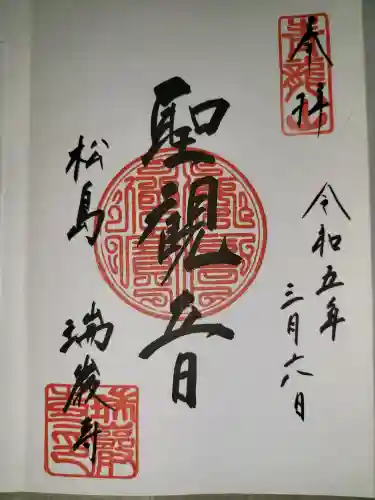 奉拝
令和五年
三月六日
聖觀音
松島
瑞巌寺